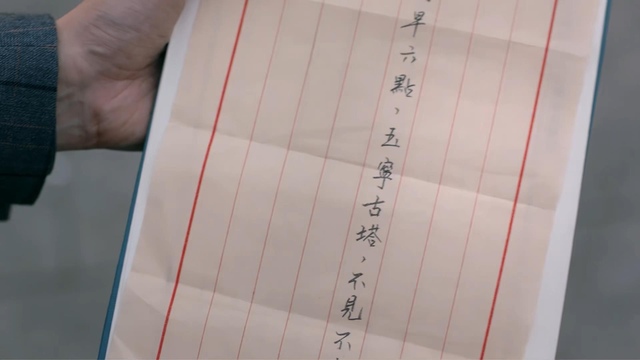 早六點，玉寧古塔，不見不